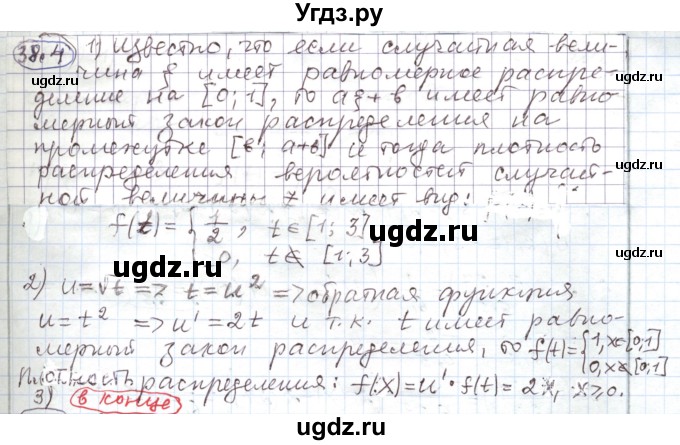 Угдз.ру
38.4 1) Известно, что если случайная вели-
чина ξ имеет равномерное распре-
деление на [0;1], то aξ+в имеет равно
мерный закон распределения на
промежутке [в; a+в] и тогда плотность
распределения вероятностей случай-
ной величины z имеет вид:
f(t)={1/2, t∈[1; 3]
0, t∉[1;3]
2) u=√t => t=u² => обратная функция
u=t² => u'=2t и т.к. t имеет равно-
мерный закон распределения, то f(t)={1, x∈[0;1]
0, x∉[0;1]
Плотность распределения: f(x)=u'·f(t)=2x, x≥0.
3) в конце
©gdz.ru
©gdz.ru
©gdz.ru
©gdz.ru
©gdz.ru
©gdz.ru
©gdz.ru
©gdz.ru
Угдз.ру